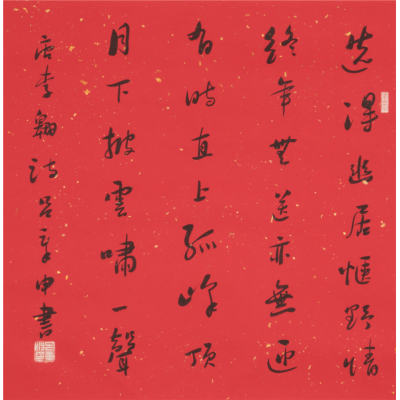 選得幽居愜野情
終年無送亦無迎
有時直上孤峰頂
月下披雲嘯一聲
唐李翱詩呂章申書